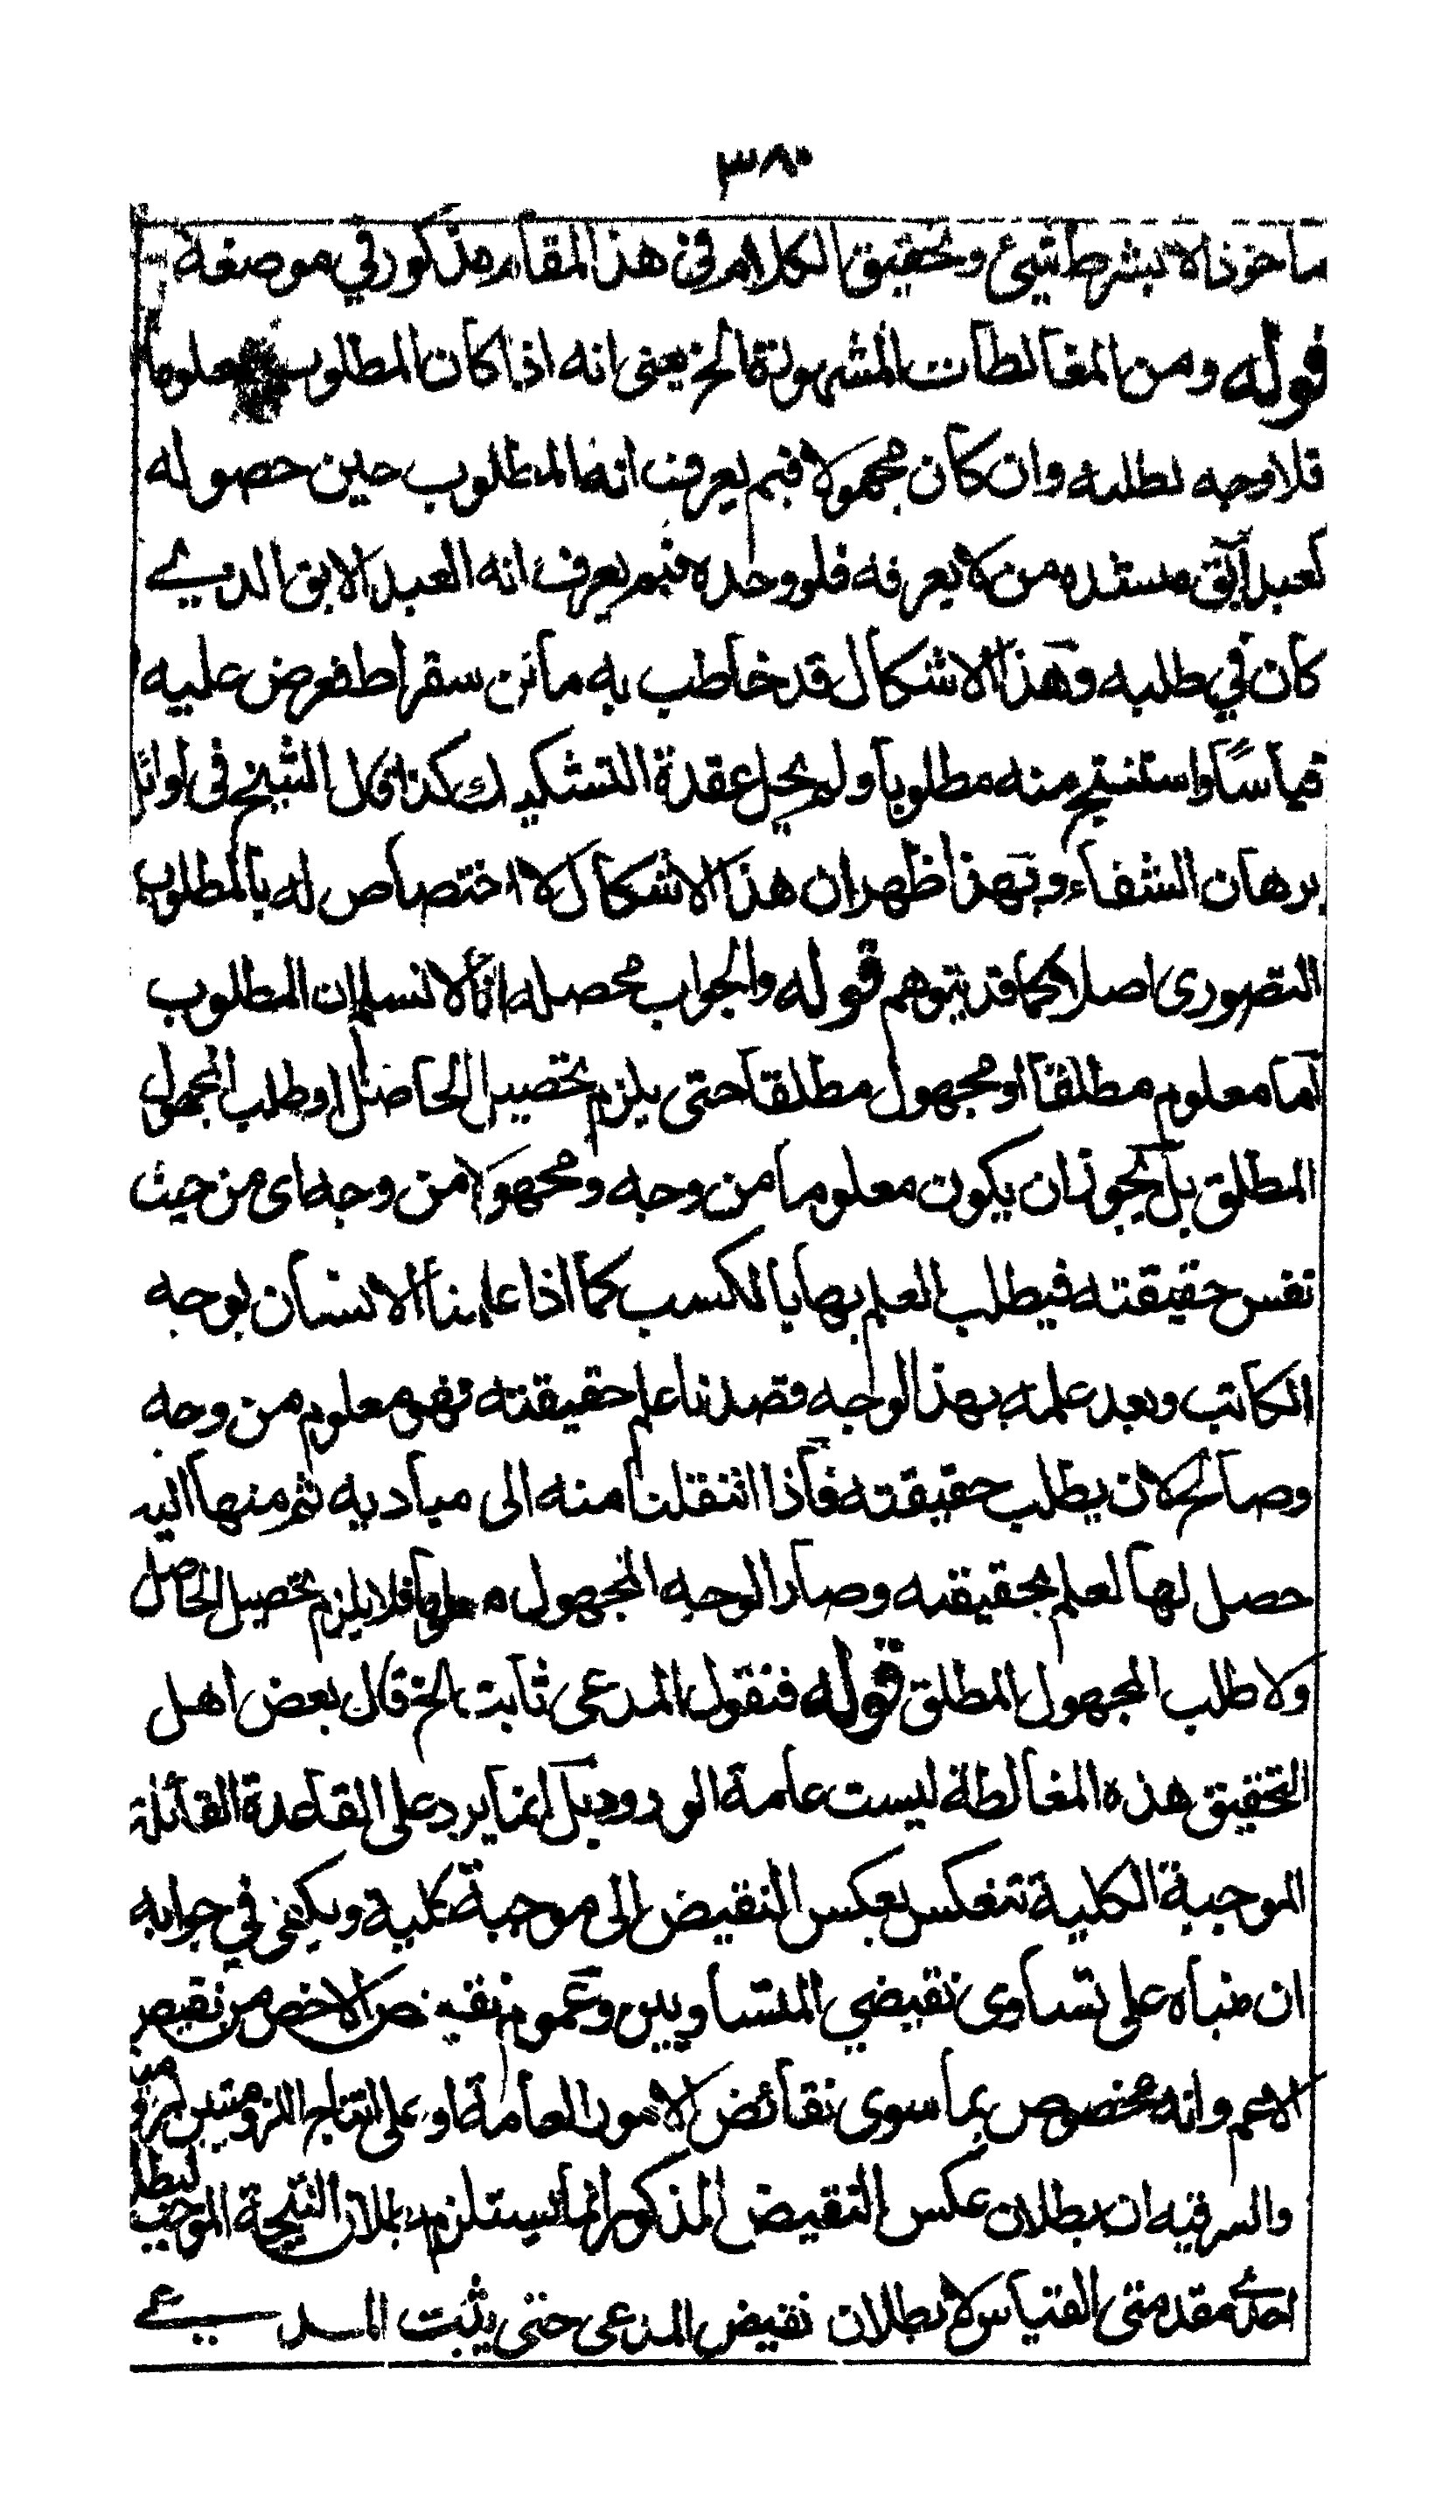 ٣٨٠
ماخوذ الا بشرط شیئ وتحقیق الکلام فی هذا المقام مذکور في موضعه
قوله ومن المغالطات المشهورة الخ یعنی انه اذا کان المطلوب معلوما
فلا وجه لطلبه وان کان مجهولا فبم یعرف انه المطلوب حین حصوله
لعبد آبق من لا یعرفه فلو وجده فبم یعرف انه العبد الابق الذي
کان في طلبه وهذا الاشکال قد خاطب به مانن سقراط فعرض علیه
قیاسًا واستنتج منه مطلوبا ولم یحل عقدة التشکیك کذا قال الشیخ فی اوائل
برهان الشفاء وبهذا ظهر ان هذا الاشکال لا اختصاص له بالمطلوب
التصوری اصلا کما قد یتوهم قوله والجواب محصله انا لا نسلم ان المطلوب
اما معلوم مطلقا او مجهول مطلقا حتی یلزم تحصیل الحاصل او طلب المجهول
المطلق بل یجوز ان یکون معلوما من وجه ومجهولا من وجه ای من حیث
نفس حقیقته فیطلب العلم بها بالکسب کما اذا علمنا الانسان بوجه
الکاتب وبعد علمه بهذا الوجه قصدنا علم حقیقته فهو معلوم من وجه
وصالح لان یطلب حقیقته فاذا انتقلنا منه الی مبادیه ثم منها الیه
حصل لها العلم بحقیقته وصار الوجه المجهول معلوما فلا یلزم تحصیل الحاصل
ولا طلب المجهول المطلق قوله فنقول المدعی ثابت الخ قال بعض اهل
التحقیق هذه المغالطة لیست عامة الورود بل انما یرد علی القاعدة القائلة
الموجبة الکلیة تنعکس بعکس النقیض الی موجبة کلیة ویکفی في جوابه
ان مبناه علی تساوی نقیضي المتساویین وعموم نقیض الاخص من نقیض
الاعم وانه مخصوص بما سوی نقائض الامور العامة او علی انتاج اللزومیتین لزومیة
والسر فیه ان بطلان عکس النقیض المذکور انما یستلزم بطلان النتیجة الموجب لبطلان
احدی مقدمتی القیاس لا بطلان نقیض المدعی حتی یثبت المدعي